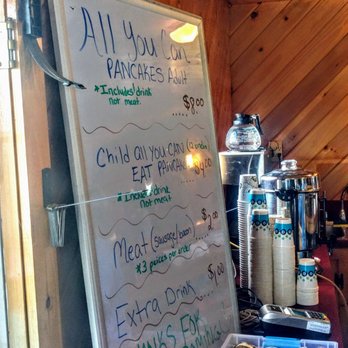 All You Can
PANCAKES Adult
*Includes drink
not meat
..... $8.00
Child all you can (12 under)
EAT PANCAKE
..... $4.00
*Includes drink
not meat
Meat (sausage/bacon)
*3 peices per order
.... $2.00
Extra Drink
.... $1.00
FOR